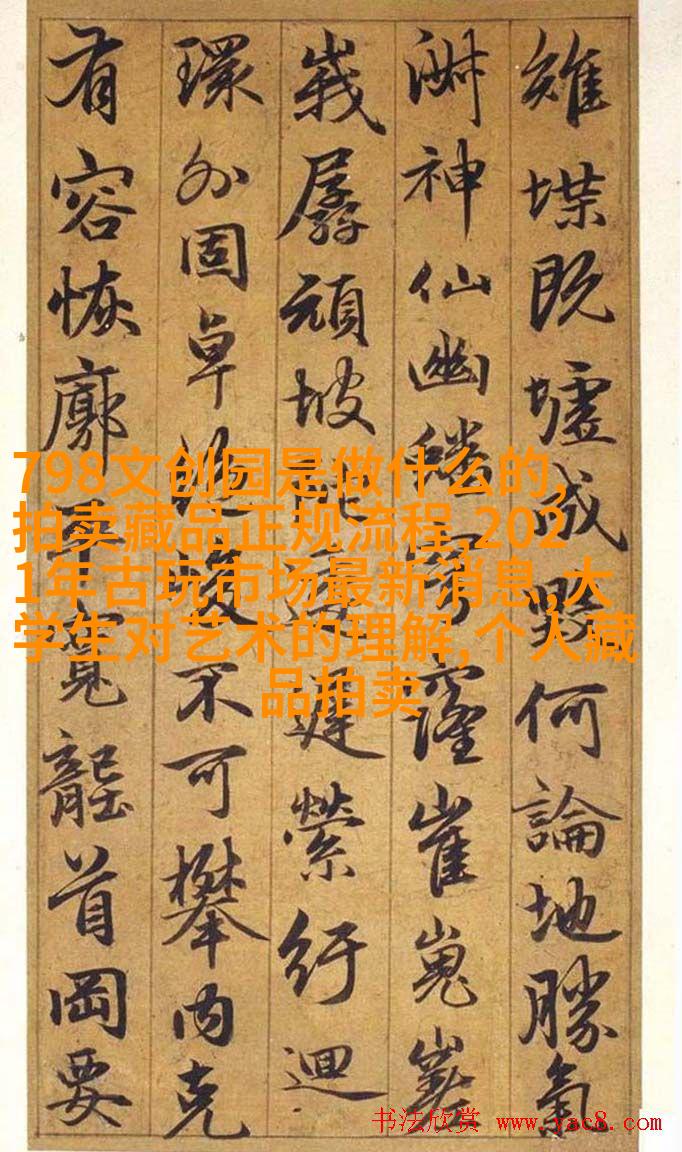 雉堞既墟成何論地勝氣
神仙幽窿崔嵬嵳
峩孱頑坡遲縈紆迴
環外固卓不可攀内克
有容恢廓平寬首岡要
798文创园是做什么的,
拍卖藏品正规流程,202
1年古玩市场最新消息,大
学生对艺术的理解,个人藏
品拍卖
书法欣赏 www.yac8.com